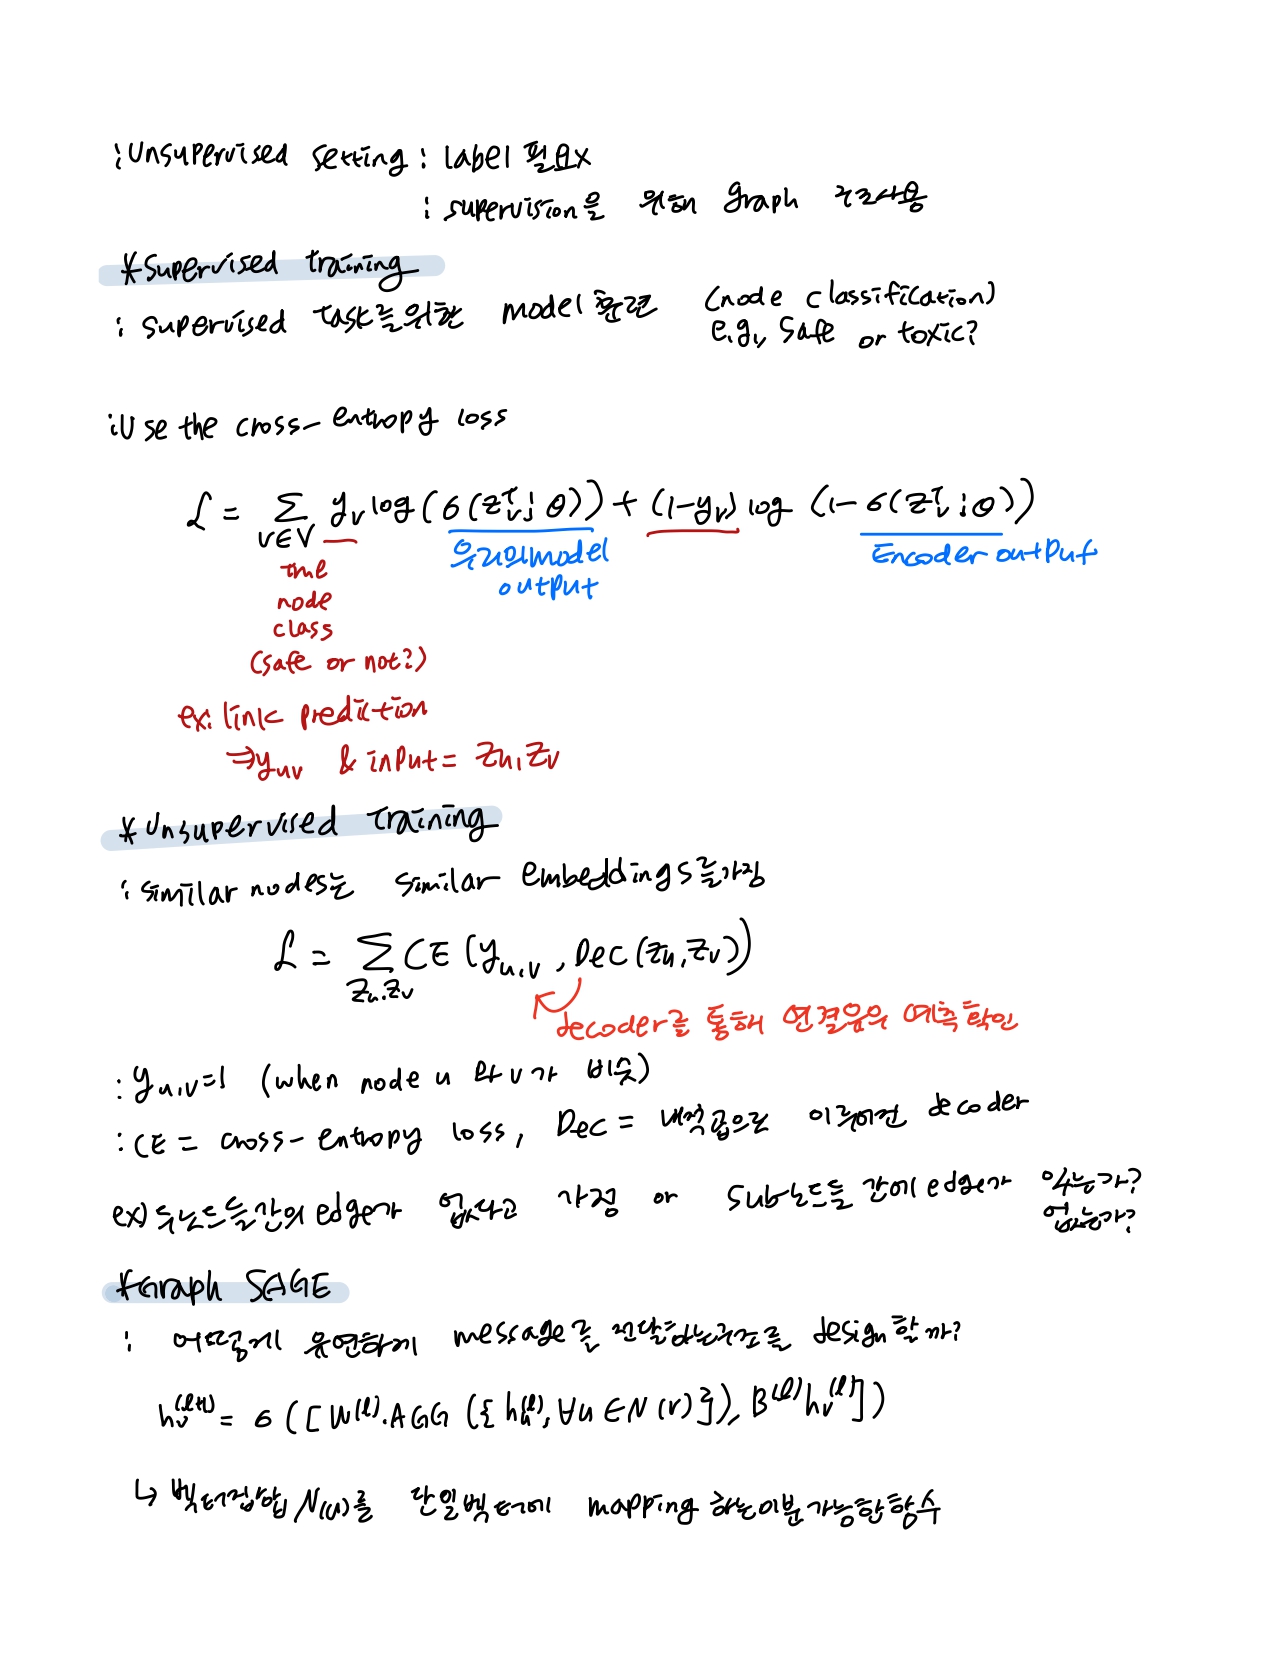 : Unsupervised setting : label 필요x
: supervision을 위해 graph 구조사용
* Supervised training
: supervised task를위한 model훈련 (node classification)
e.g., safe or toxic?
: Use the cross-entropy loss
ℒ = Σ_{v∈V} y_v log(σ(z_v^T; θ)) + (1-y_v) log (1-σ(z_v^T; θ))
true
node
class
(safe or not?)
우리의model
output
Encoder output
ex: link prediction
⇒ y_uv & input = z_u, z_v
* Unsupervised training
: similar nodes는 similar embeddings를가짐
ℒ = Σ_{z_u, z_v} CE (y_{u,v}, Dec(z_u, z_v))
decoder를 통해 연결유무 예측확인
: y_{u,v}=1 (when node u 와 v가 비슷)
: CE = cross-entropy loss, Dec = 내적곱으로 이루어진 decoder
ex) 두노드들간의 edge가 없다고 가정 or sub노드들 간에 edge가 있는가?
없는가?
* Graph SAGE
: 어떻게 유연하게 message를 전달하는구조를 design할까?
h_v^{(l+1)} = σ([W^{(l)}·AGG({h_u^{(l)}, ∀u∈N(v)}), B^{(l)}h_v^{(l)}])
↳ 벡터집합 N(u)를 단일벡터에 mapping 하는미분가능한함수